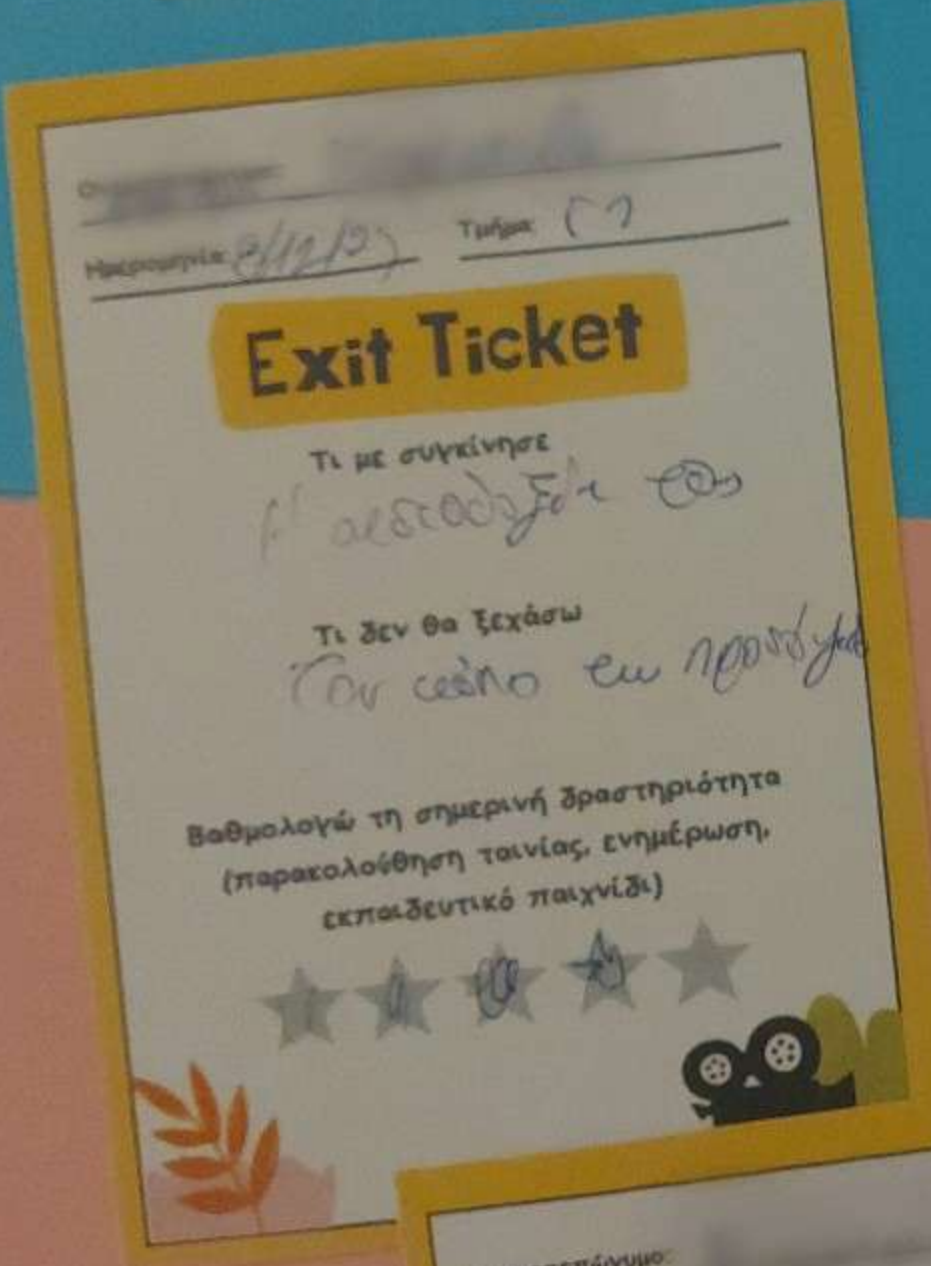 Ημερομηνία: 8/12/23 Τμήμα: Γ1
Exit Ticket
Τι με συγκίνησε
Η αισιοδοξία τους
Τι δεν θα ξεχάσω
Τον τρόπο των
Βαθμολογώ τη σημερινή δραστηριότητα
(παρακολούθηση ταινίας, ενημέρωση,
εκπαιδευτικό παιχνίδι)